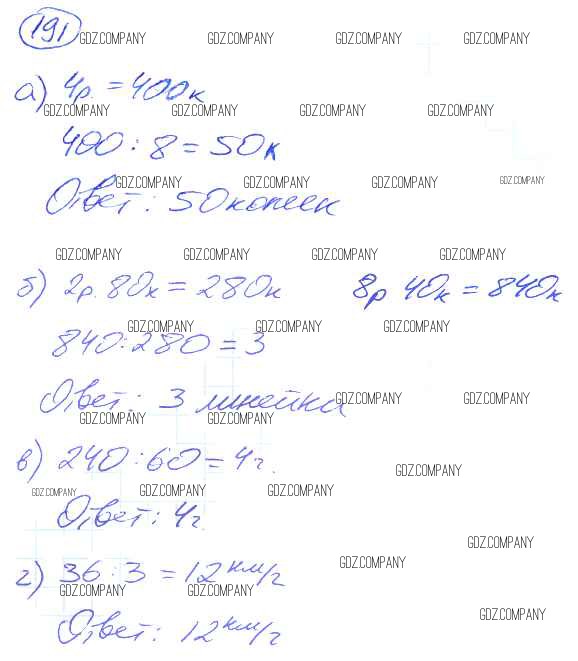 191 GDZ.COMPANY GDZ.COMPANY GDZ.COMPANY GDZ.COMPANY
а) 4р. = 400к
GDZ.COMPANY GDZ.COMPANY GDZ.COMPANY GDZ.COMPANY
400 : 8 = 50к
GDZ.COMPANY GDZ.COMPANY GDZ.COMPANY GDZ.COMPANY
Ответ: 50 копеек
GDZ.COMPANY GDZ.COMPANY GDZ.COMPANY GDZ.COMPANY
б) 2р. 80к = 280к 8р 40к = 840к
GDZ.COMPANY GDZ.COMPANY GDZ.COMPANY
840 : 280 = 3
Ответ: 3 линейки GDZ.COMPANY GDZ.COMPANY
GDZ.COMPANY GDZ.COMPANY
в) 240 : 60 = 4г. GDZ.COMPANY
GDZ.COMPANY GDZ.COMPANY GDZ.COMPANY
Ответ: 4г.
GDZ.COMPANY
г) 36 : 3 = 12 км/г GDZ.COMPANY
GDZ.COMPANY GDZ.COMPANY
Ответ: 12 км/г GDZ.COMPANY